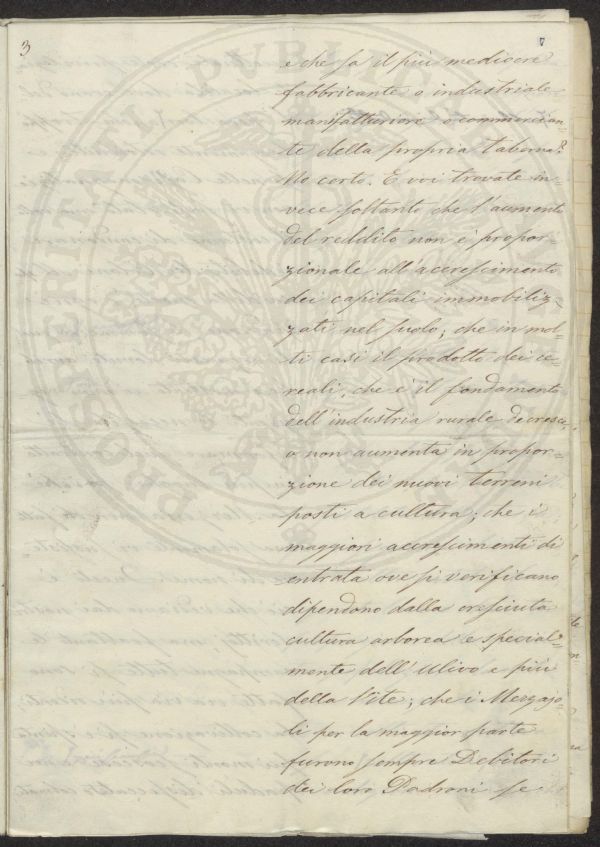 3
7
e che fa il più mediocre
fabbricante o industriale
manifatturiere o commercian=
te della propria taberna?
No certo. E voi trovate in=
vece soltanto che l'aumento
del reddito non è propor=
zionale all'accrescimento
dei capitali immobiliz=
zati nel suolo; che in mol=
ti casi il prodotto dei ce=
reali, che è il fondamento
dell'industria rurale decresce,
o non aumenta in propor=
zione dei nuovi terreni
posti a cultura; che i
maggiori accrescimenti di
entrata ove si verificano,
dipendono dalla cresciuta
cultura arborea e special=
mente dell'Ulivo e più
della Vite; che i Mezzajo=
li per la maggior parte
furono sempre Debitori
dei loro Padroni se
PROSPERITATI PUBLICAE